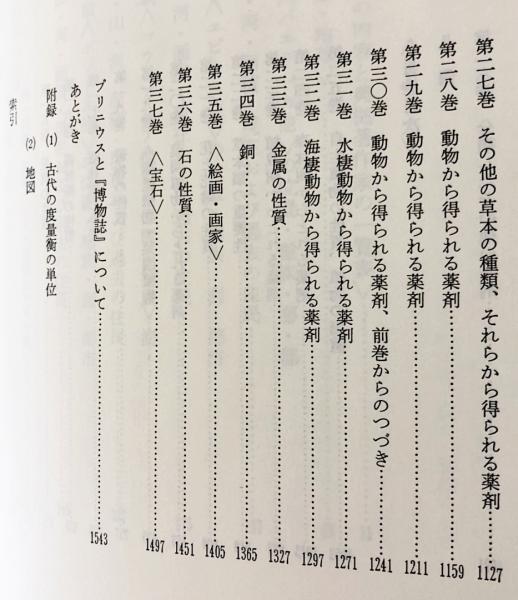 第二七巻 その他の草本の種類、それらから得られる薬剤……1127
第二八巻 動物から得られる薬剤……1159
第二九巻 動物から得られる薬剤……1211
第三〇巻 動物から得られる薬剤、前巻からのつづき……1241
第三一巻 水棲動物から得られる薬剤……1271
第三二巻 海棲動物から得られる薬剤……1297
第三三巻 金属の性質……1327
第三四巻 銅……1365
第三五巻 〈絵画・画家〉……1405
第三六巻 石の性質……1451
第三七巻 〈宝石〉……1497
プリニウスと『博物誌』について……1543
あとがき
附録 (1) 古代の度量衡の単位
(2) 地図
索引